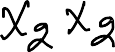 X₂ X₂